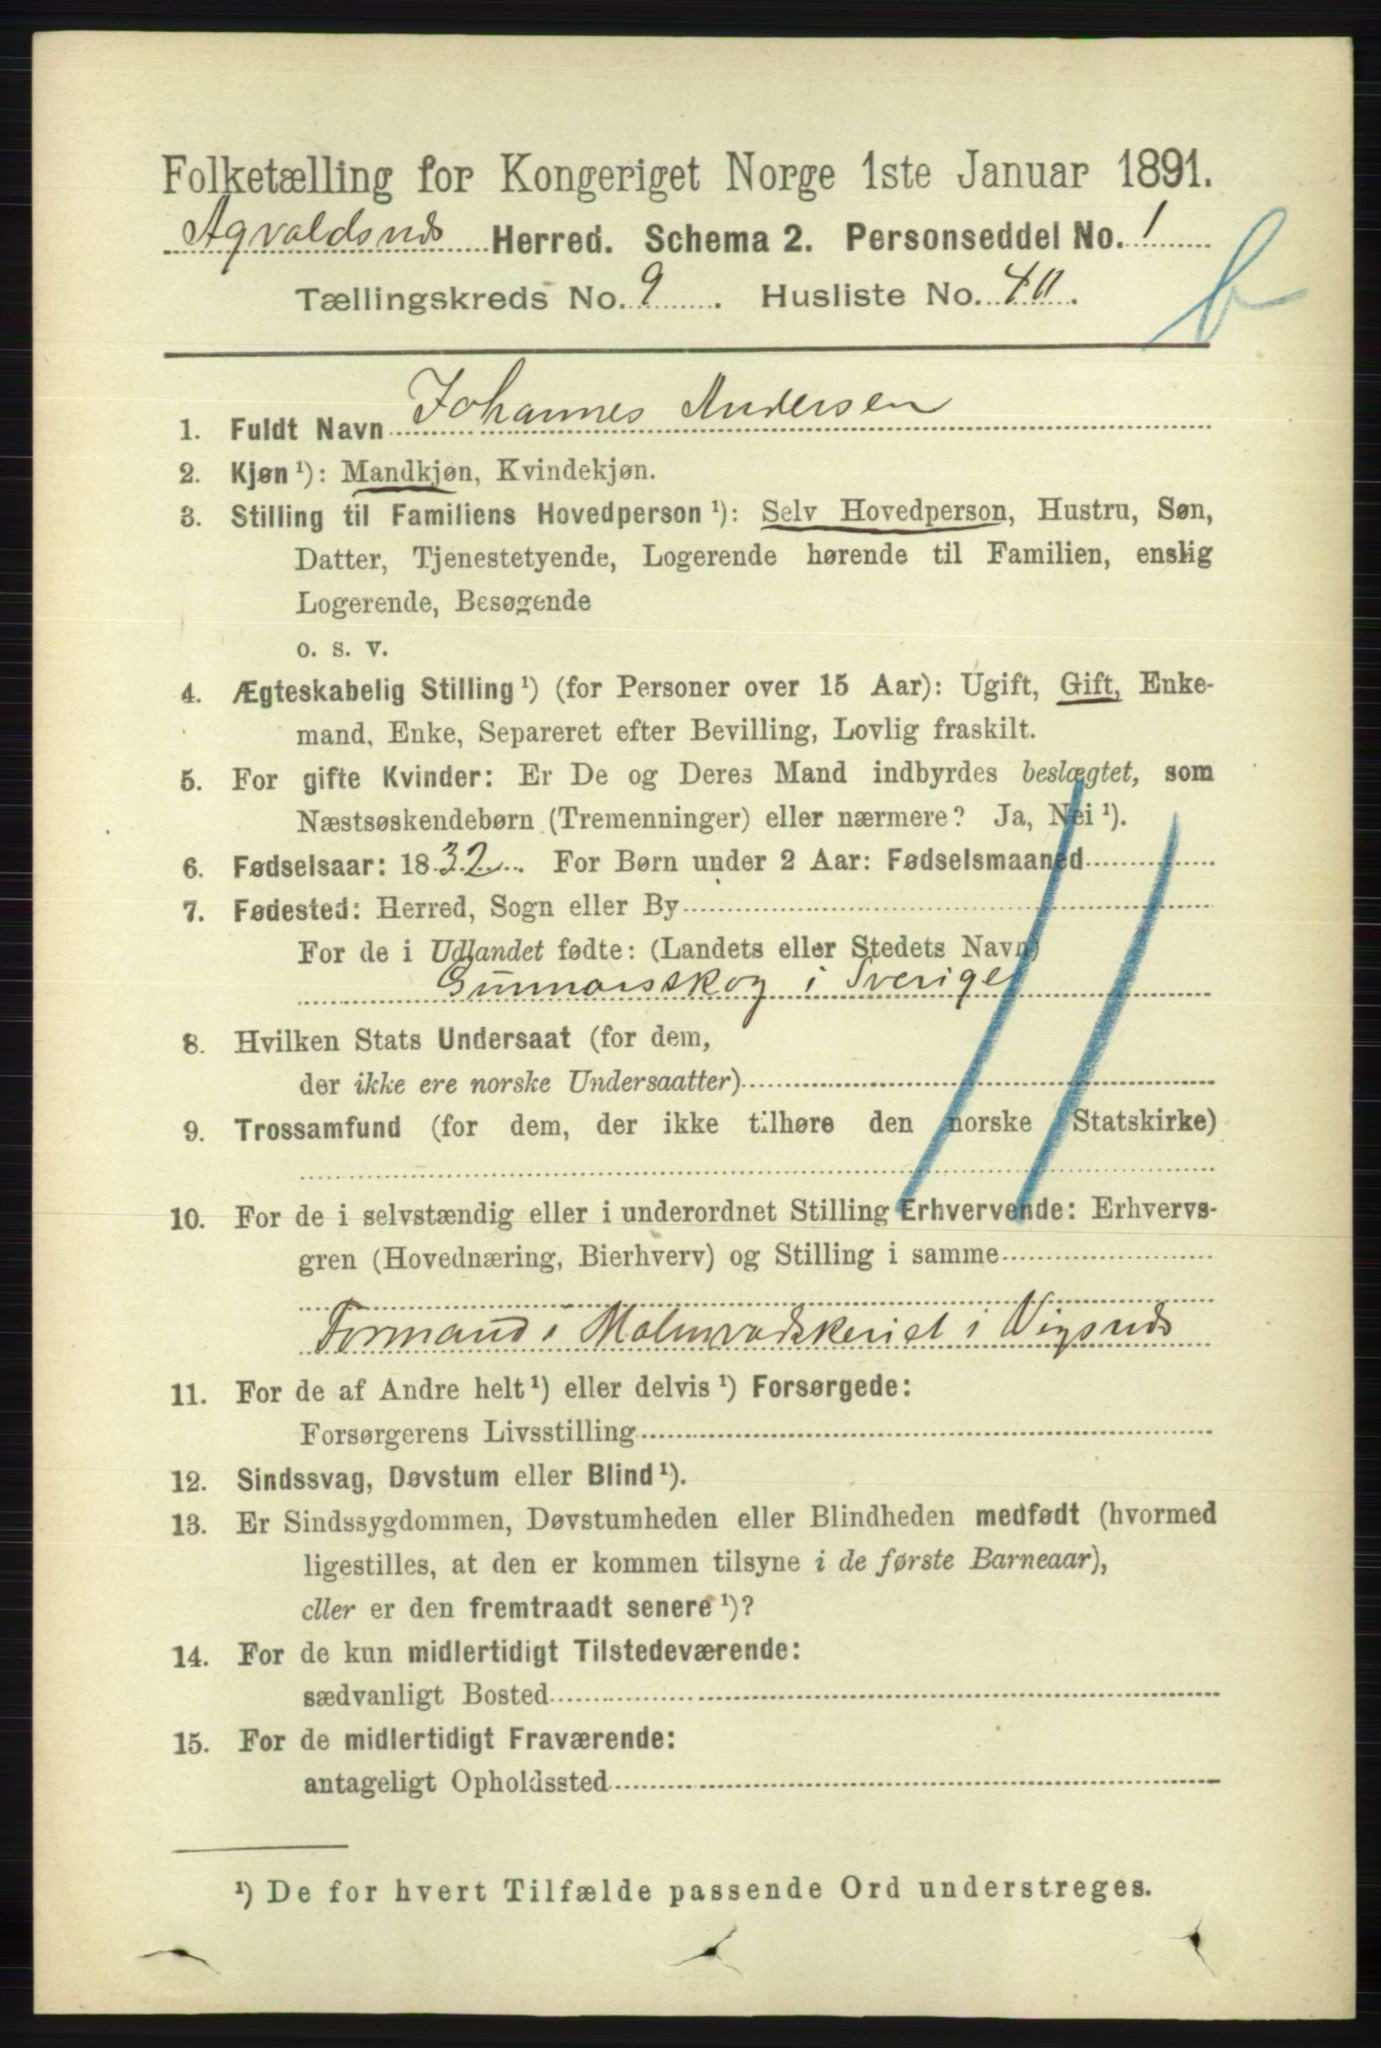 Folketælling for Kongeriget Norge 1ste Januar 1891.
Agvaldsnds Herred. Schema 2. Personseddel No. 1
Tællingskreds No. 9. Husliste No. 40.
b
1. Fuldt Navn Johannes Andersen
2. Kjøn¹): Mandkjøn, Kvindekjøn.
3. Stilling til Familiens Hovedperson¹): Selv Hovedperson, Hustru, Søn,
Datter, Tjenestetyende, Logerende hørende til Familien, enslig
Logerende, Besøgende
o. s. v.
4. Ægteskabelig Stilling¹) (for Personer over 15 Aar): Ugift, Gift, Enke-
mand, Enke, Separeret efter Bevilling, Lovlig fraskilt.
5. For gifte Kvinder: Er De og Deres Mand indbyrdes beslægtet, som
Næstsøskendebørn (Tremenninger) eller nærmere? Ja, Nei¹).
6. Fødselsaar: 1832. For Børn under 2 Aar: Fødselsmaaned
7. Fødested: Herred, Sogn eller By
For de i Udlandet fødte: (Landets eller Stedets Navn)
Gunnarsskog i Sverige
8. Hvilken Stats Undersaat (for dem,
der ikke ere norske Undersaatter)
9. Trossamfund (for dem, der ikke tilhøre den norske Statskirke)
10. For de i selvstændig eller i underordnet Stilling Erhvervende: Erhvervs-
gren (Hovednæring, Bierhverv) og Stilling i samme
Formand i Malmvadskeriet i Vigsnds
11. For de af Andre helt¹) eller delvis¹) Forsørgede:
Forsørgerens Livsstilling
12. Sindssvag, Døvstum eller Blind¹).
13. Er Sindssygdommen, Døvstumheden eller Blindheden medfødt (hvormed
ligestilles, at den er kommen tilsyne i de første Barneaar),
eller er den fremtraadt senere¹)?
14. For de kun midlertidigt Tilstedeværende:
sædvanligt Bosted
15. For de midlertidigt Fraværende:
antageligt Opholdssted
¹) De for hvert Tilfælde passende Ord understreges.